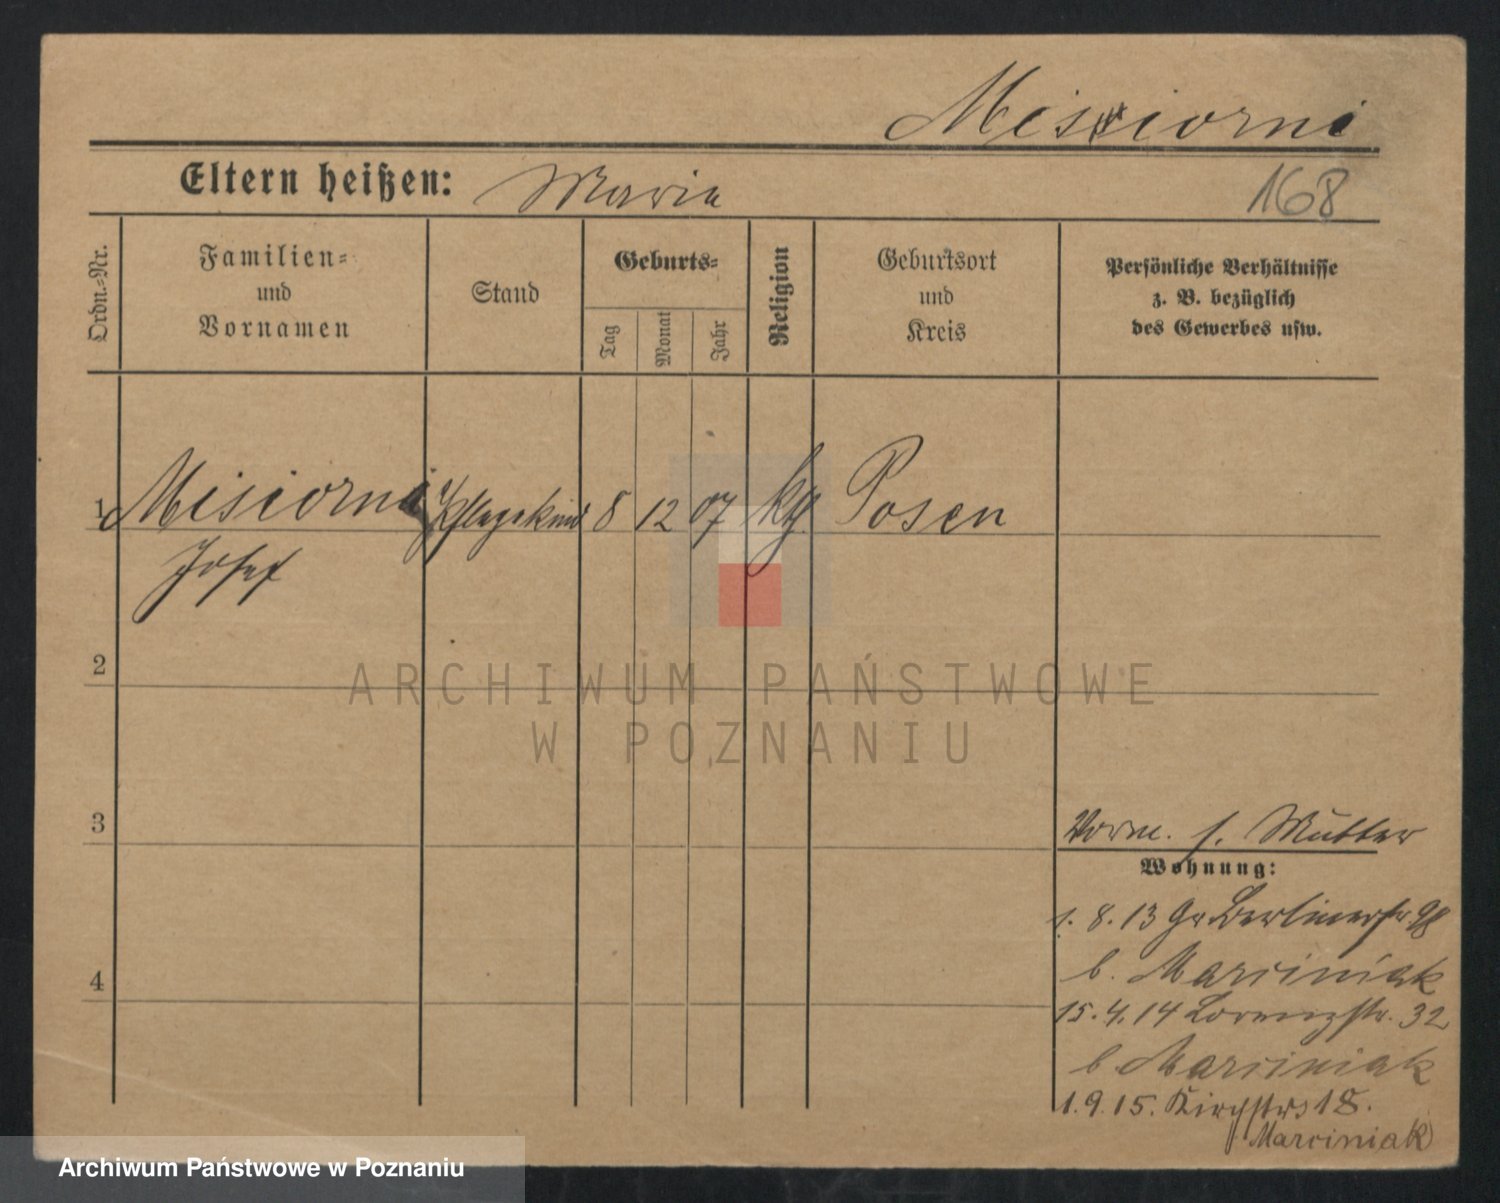 Misiorni
Eltern heißen: Maria
168
Ordn.-Nr.
Familien-
und
Vornamen
Stand
Geburts-
Tag
Monat
Jahr
Religion
Geburtsort
und
Kreis
Persönliche Verhältnisse
z. B. bezüglich
des Gewerbes usw.
1 Misiorni Pflegekind 8 12 07 kg Posen
Josef
2
ARCHIWUM PAŃSTWOWE
W POZNANIU
3
Vorm. s. Mutter
Wohnung:
1. 8. 13 Gr. Berlinerstr. 98
b. Marciniak
4
15. 4. 14 Lorenzstr. 32
b. Marciniak
1. 9. 15. Kirchstrs 18.
Marciniak
Archiwum Państwowe w Poznaniu